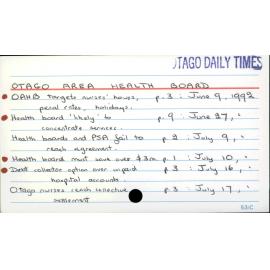 OTAGO DAILY TIMES
OTAGO AREA HEALTH BOARD
OAHB targets nurses' hours, p.3 : June 9, 1992
penal rates, holidays.
Health board 'likely' to p.9 : June 27, "
concentrate services.
Health boards and PSA fail to p.2 : July 9, "
reach agreement.
Health board must save over $3m p.1 : July 10, "
Debt collector option over unpaid p.3 : July 16, "
hospital accounts
Otago nurses reach collective p.3 : July 17, "
settlement